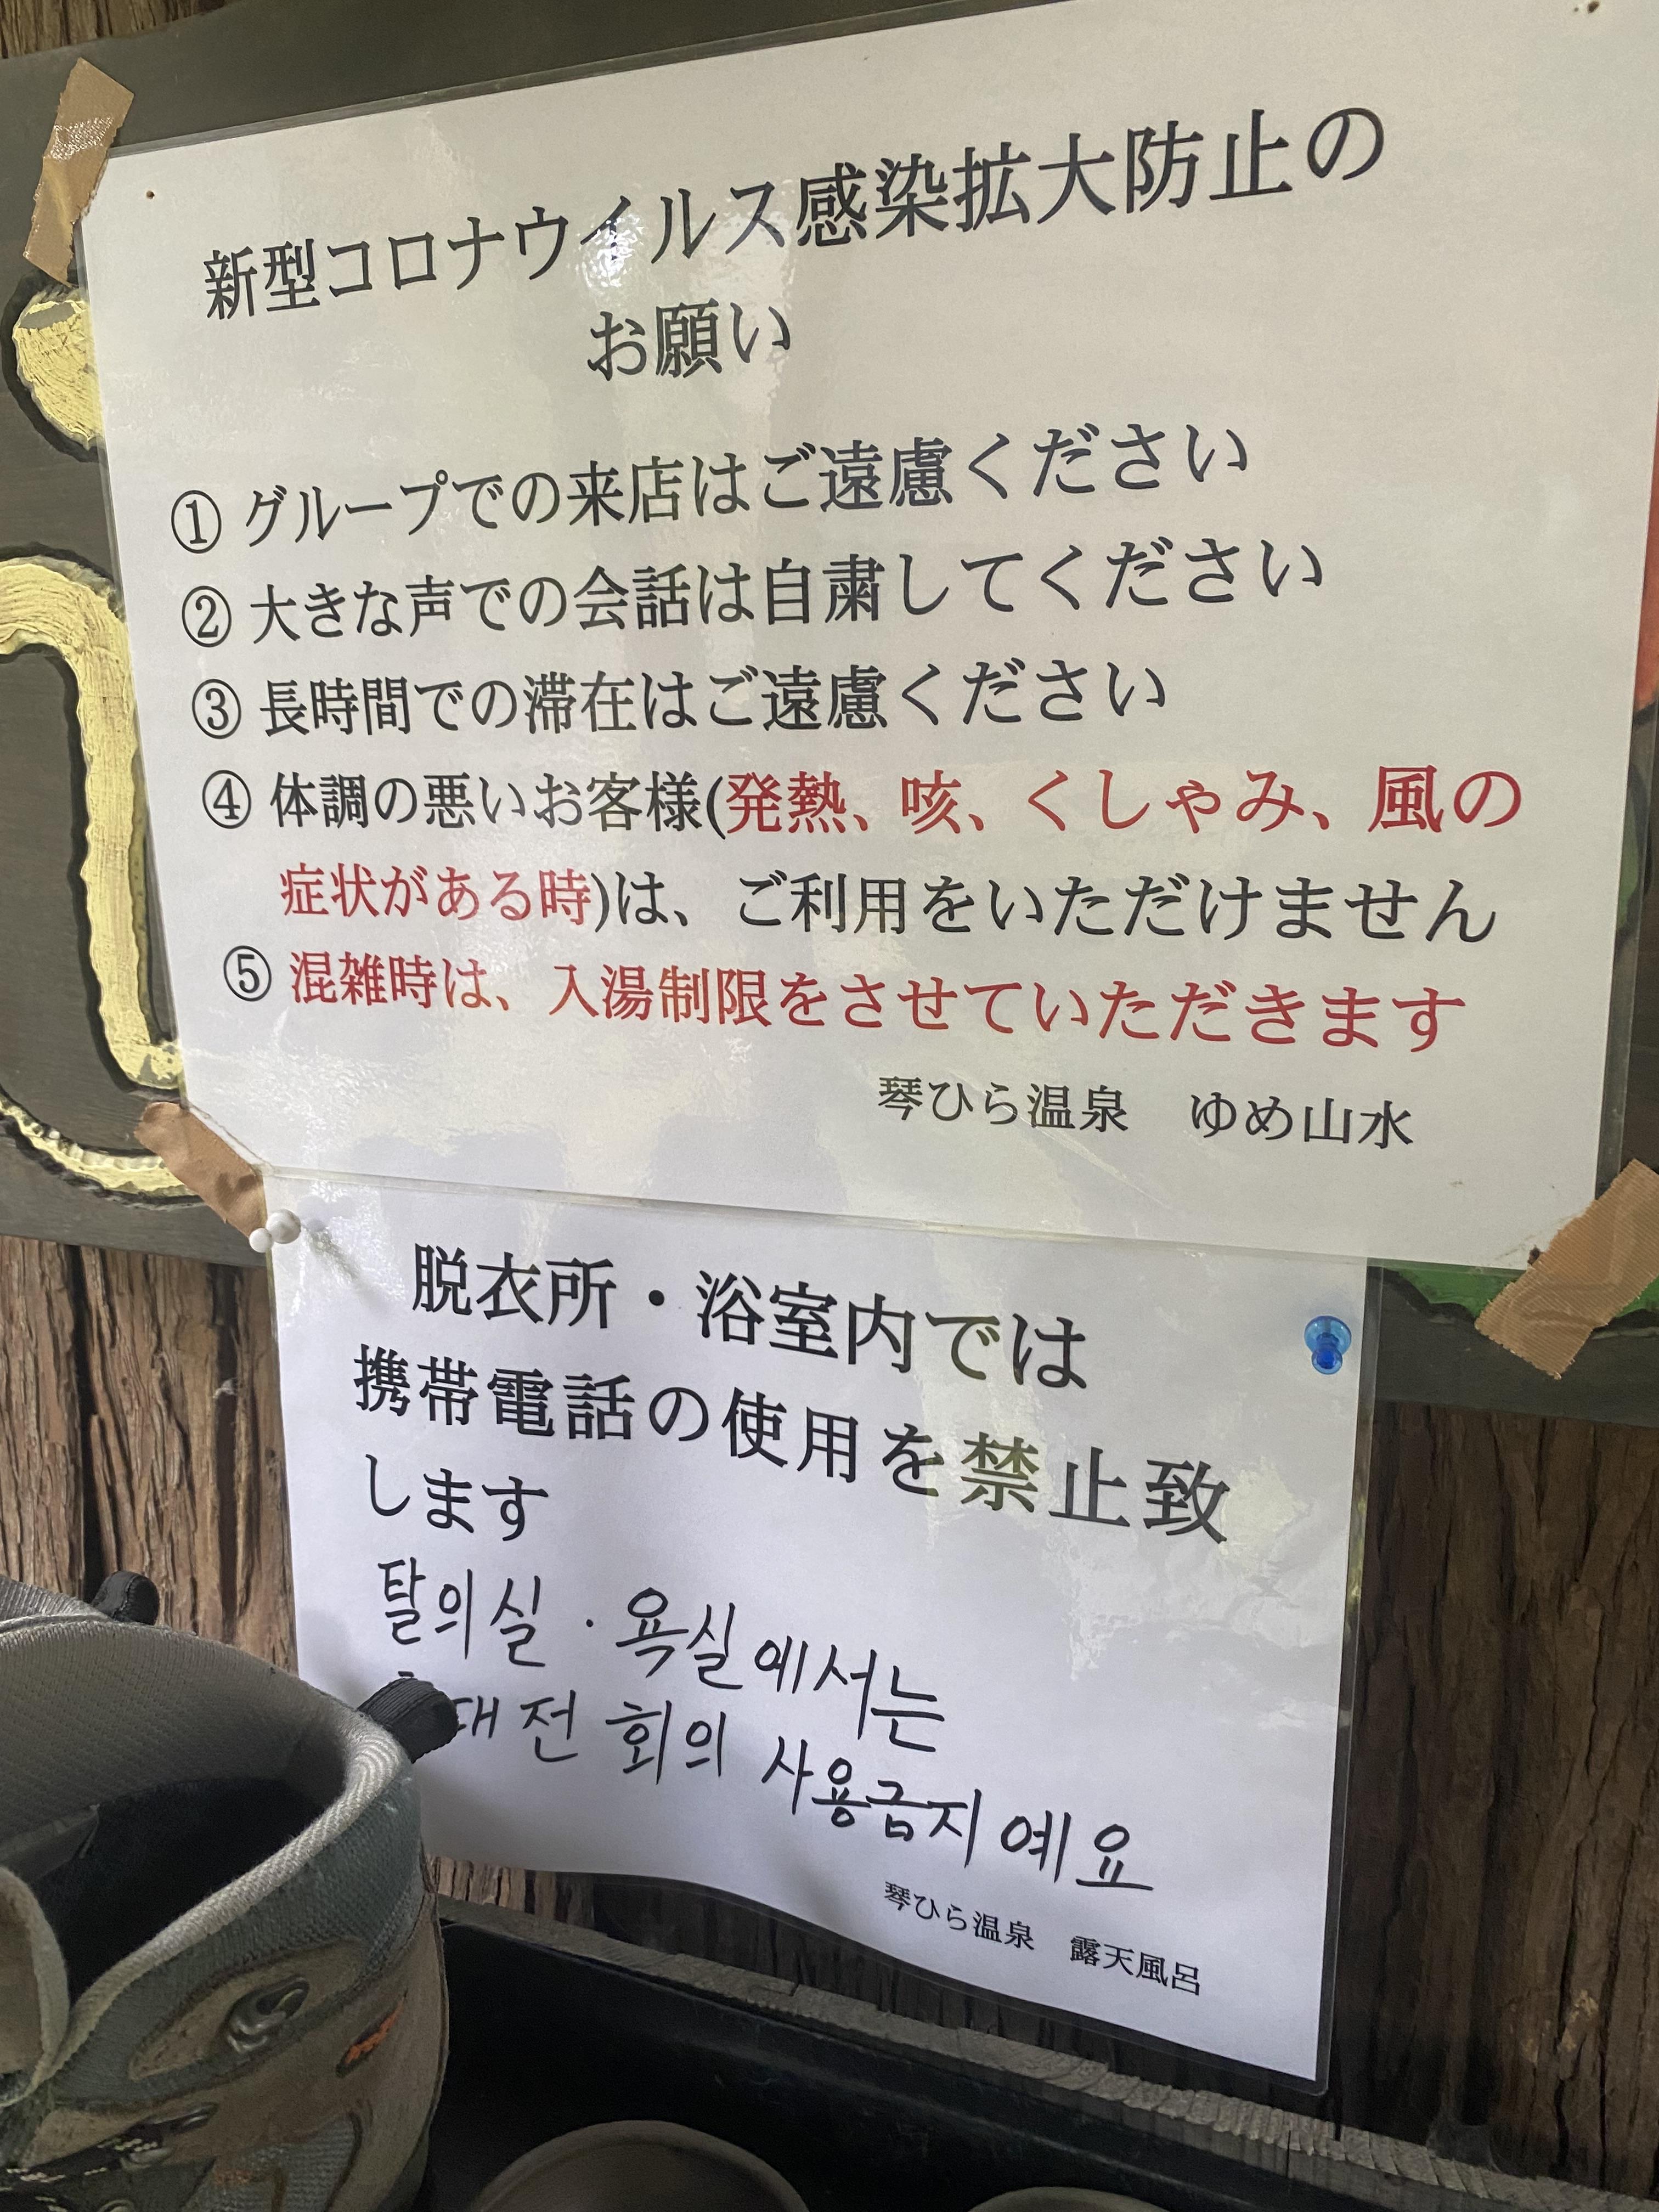 新型コロナウイルス感染拡大防止の
お願い
① グループでの来店はご遠慮ください
② 大きな声での会話は自粛してください
③ 長時間での滞在はご遠慮ください
④ 体調の悪いお客様(発熱、咳、くしゃみ、風の
症状がある時)は、ご利用をいただけません
⑤ 混雑時は、入湯制限をさせていただきます
琴ひら温泉　ゆめ山水
脱衣所・浴室内では
携帯電話の使用を禁止致
します
탈의실・욕실에서는
대전 회의 사용금지예요
琴ひら温泉　露天風呂